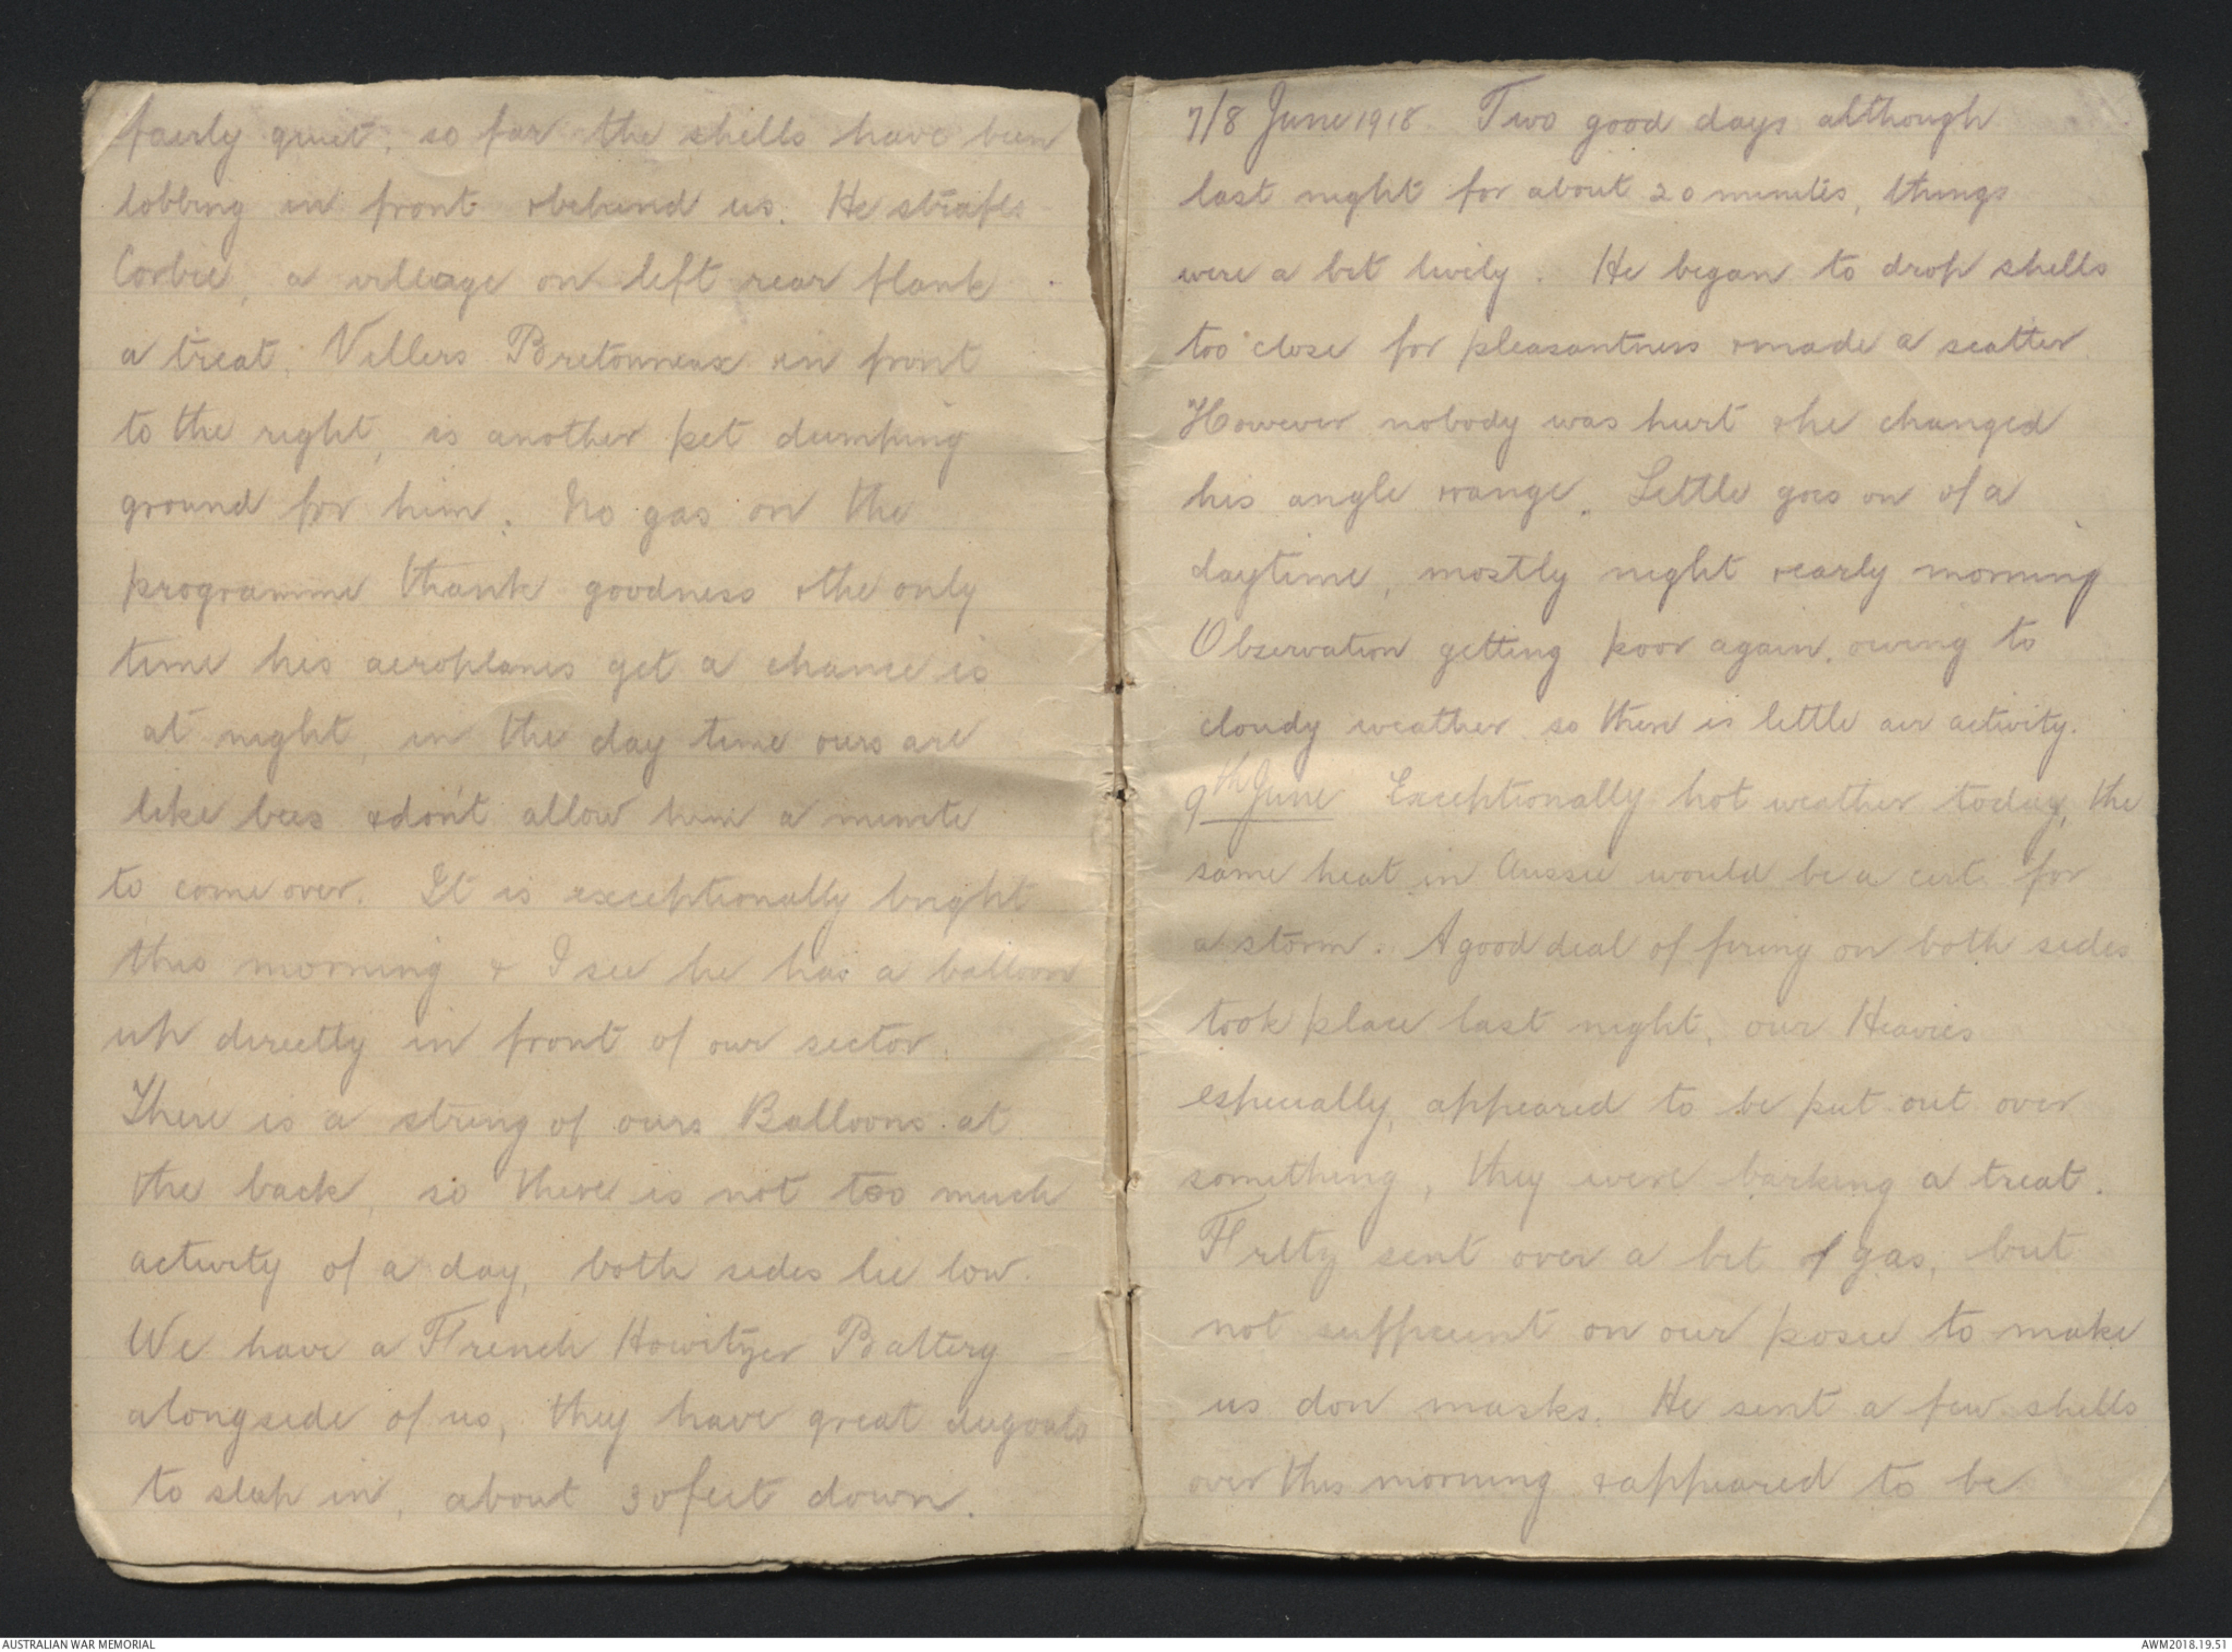 fairly quiet, so far the shells have been
lobbing in front & behind us. He strafes
Corbie, a village on left rear flank
a treat. Villers Bretonneux in front
to the right, is another pet dumping
ground for him. No gas on the
programme thank goodness & the only
time his aeroplanes get a chance is
at night, in the day time ours are
like bees & don't allow him a minute
to come over. It is exceptionally bright
this morning & I see he has a balloon
up directly in front of our sector.
There is a string of ours Balloons at
the back, so there is not too much
activity of a day, both sides lie low.
We have a French Howitzer Battery
alongside of us, they have great dugouts
to sleep in, about 30 feet down.
7/8 June 1918 Two good days although
last night for about 20 minutes, things
were a bit lively. He began to drop shells
too close for pleasantness & made a scatter
However nobody was hurt & he changed
his angle & range. Little goes on of a
daytime, mostly night & early morning
Observation getting poor again, owing to
cloudy weather so there is little air activity.
9th June Exceptionally hot weather today, the
same heat in Aussie would be a cert for
a storm. A good deal of firing on both sides
took place last night, our Heavies
especially, appeared to be put out over
something, they were barking a treat.
Fritz sent over a bit of gas, but
not sufficient on our posie to make
us don masks. He sent a few shells
over this morning & appeared to be
AUSTRALIAN WAR MEMORIAL
AWM2018.19.51